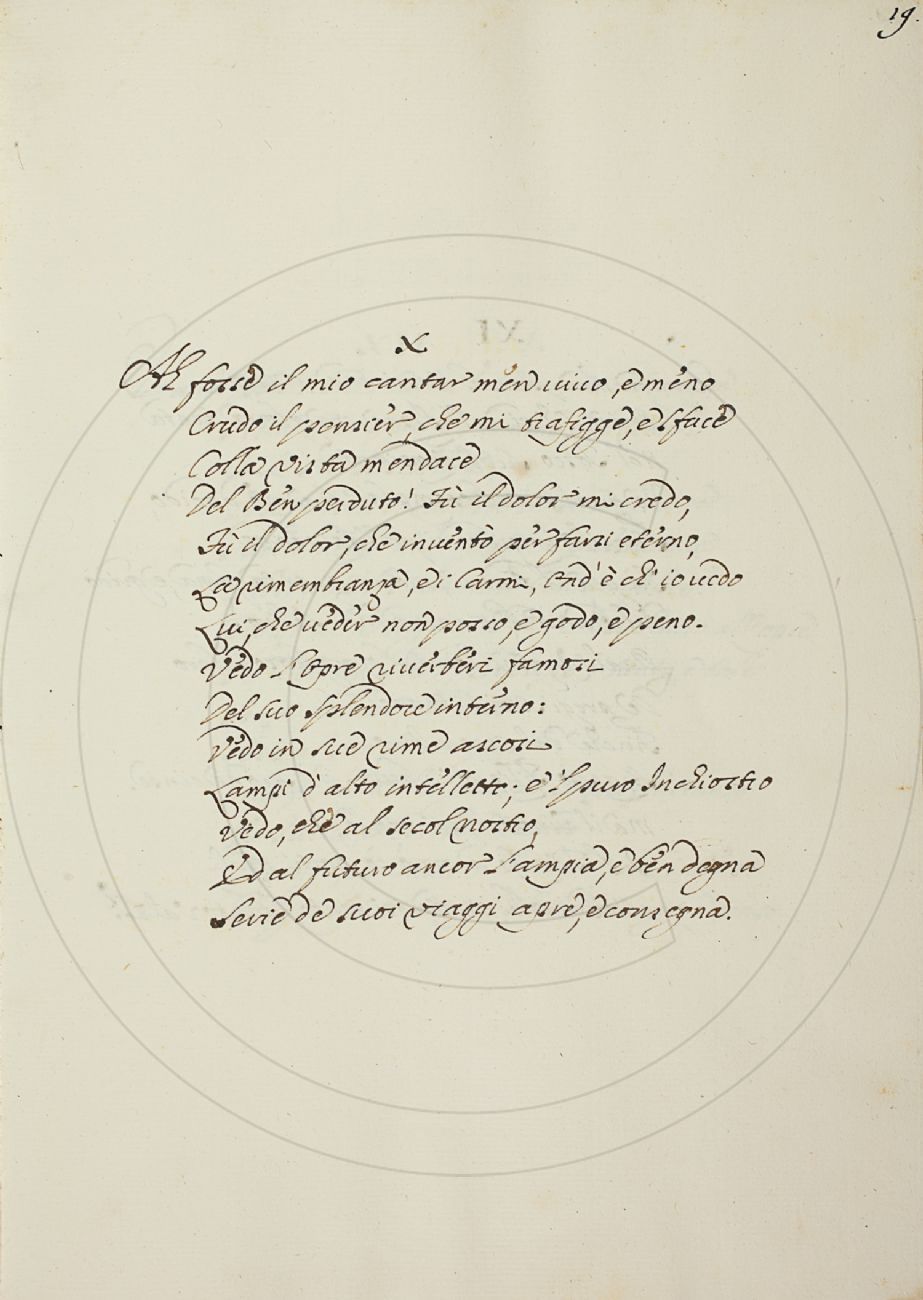 19.
X
Ah fosse il mio cantar men vivo, e meno
Crudo il pensier, che mi trafigge, e sface
Colla vista mendace
Del Ben perduto! Fù il dolor mi credo,
Fù il dolor, che inventò per farsi eterno,
La rimembranza, e i Carmi, Ond'è ch'io vedo
Lui, che veder non posso, e godo, e peno.
Vedo l'Opre riverberi famosi
Del suo splendore interno:
Vedo in sue rime ascosi
Lampi d'alto intelletto; e 'l puro Inchiostro
Vedo, che al secol nostro,
Ed al futuro ancor l'ampia, e ben degna
Serie de suoi viaggi apre, e consegna.